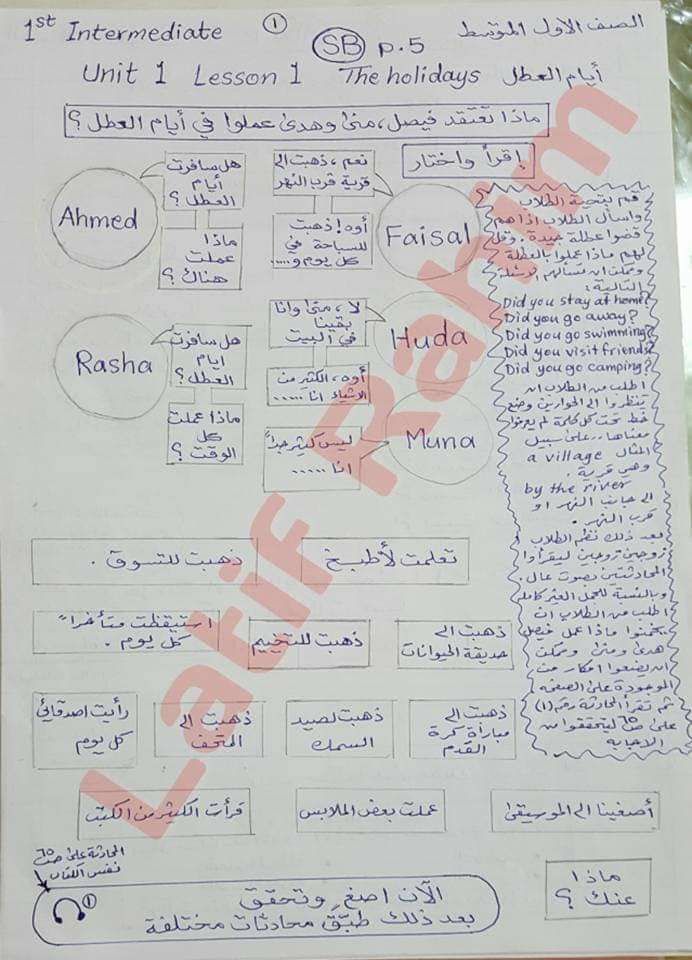 1st Intermediate
①
الصف الاول المتوسط
SB p.5
Unit 1 Lesson 1 The holidays أيام العطل
ماذا تعتقد فيصل، منى وهدى عملوا في أيام العطل؟
إقرأ واختار
Ahmed
هل سافرت
أيام
العطل؟
ماذا
عملت
هناك؟
نعم، ذهبت الى
قرية قرب النهر
أوه! ذهبت
للسباحة في
كل يوم و.....
Faisal
Rasha
هل سافرت
ايام
العطل؟
ماذا عملت
كل
الوقت؟
لا، منى وانا
بقينا
في البيت
أوه، الكثير من
الاشياء انا .....
Huda
ليس كثير جداً
انا .....
Muna
قم بتحية الطلاب
واسأل الطلاب اذا هم
قضوا عطلة جيدة. وقل
لهم ماذا عملوا بالعطلة
وممكن ان تسألهم الاسئلة
التالية:
Did you stay at home?
Did you go away?
Did you go swimming?
Did you visit friends?
Did you go camping?
اطلب من الطلاب ان
ينظروا الى الحوارين وضع
خط تحت كل كلمة لم يعرفوا
معناها.. على سبيل
المثال a village
وهي قرية.
by the river
الى جانب النهر او
قرب النهر.
بعد ذلك نظم الطلاب
زوجين زوجين ليقرأوا
المحادثتين بصوت عال.
وبالنسبة للجمل الغير كاملة
اطلب من الطلاب ان
يخمنوا ماذا عمل فيصل
هدى ومنى وممكن
ان يضعوا افكار من
الموجودة على الصفحة
ثم تقرأ المحادثة رقم (١)
على ص ٦٥ ليتحققوا من
الاجابة
تعلمت لأطبخ
ذهبت للتسوق.
ذهبت الى
حديقة الحيوانات
ذهبت للتخييم
استيقظت متأخراً
كل يوم.
ذهبت الى
مباراة كرة
القدم
ذهبت لصيد
السمك
ذهبت الى
المتحف
رأيت اصدقائي
كل يوم
أصغينا الى الموسيقى
عملت بعض الملابس
قرأت الكثير من الكتب
ماذا
عنك؟
المحادثة على ص ٦٥
نفس الكتاب
①
الآن اصغ وتحقق
بعد ذلك طبّق محادثات مختلفة
Latif Rahim